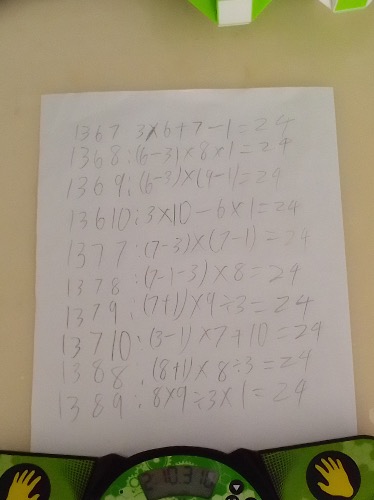 1367 3×6+7-1=24
1368:(6-3)×8×1=24
1369:(6-3)×(9-1)=24
13610:3×10-6×1=24
1377:(7-3)×(7-1)=24
1378:(7-1-3)×8=24
1379:(7+1)×9÷3=24
13710:(3-1)×7+10=24
1388:(8+1)×8÷3=24
1389:8×9÷3×1=24